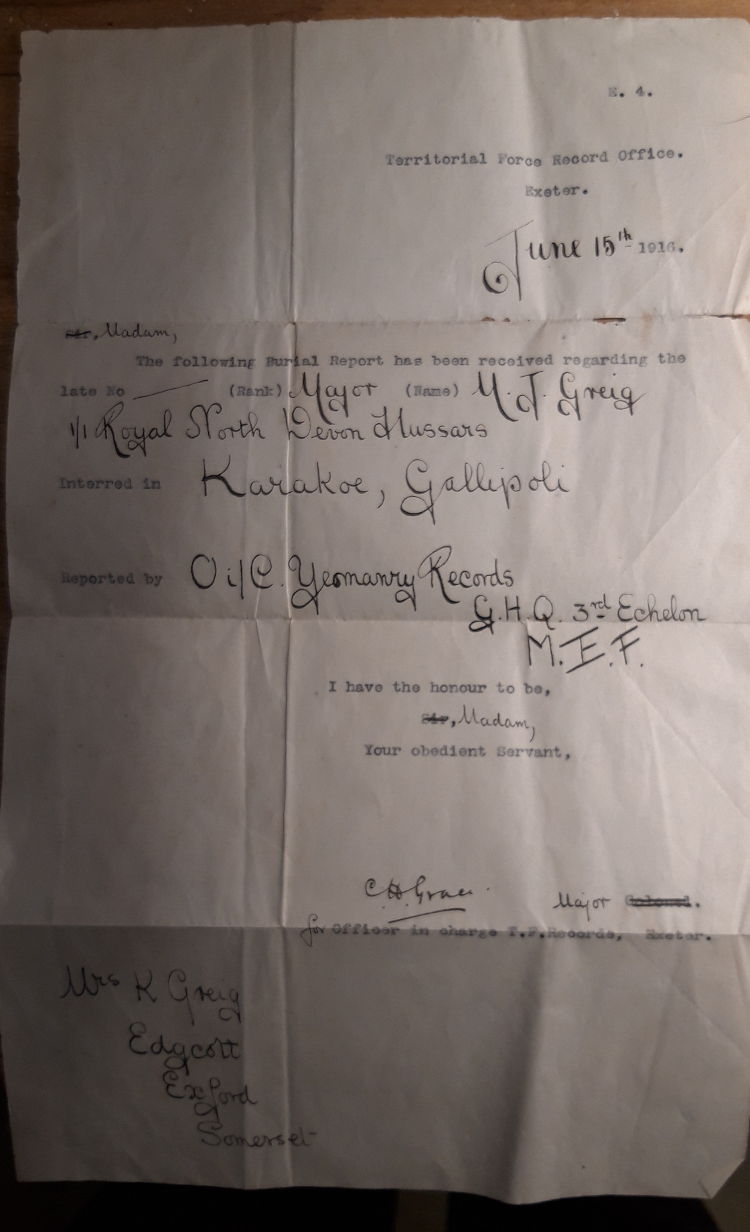 E. 4.
Territorial Force Record Office.
Exeter.
June 15th 1916.
Sir, Madam,
The following Burial Report has been received regarding the
late No (Rank) Major (Name) M. J. Greig
1/1 Royal North Devon Hussars
Interred in Karakoe, Gallipoli
Reported by O i/C. Yeomanry Records
G.H.Q. 3rd Echelon
M.E.F.
I have the honour to be,
Sir, Madam,
Your obedient Servant,
C H Grace. Major Colonel.
for Officer in charge T.F.Records, Exeter.
Mrs K Greig
Edgcott
Exford
Somerset